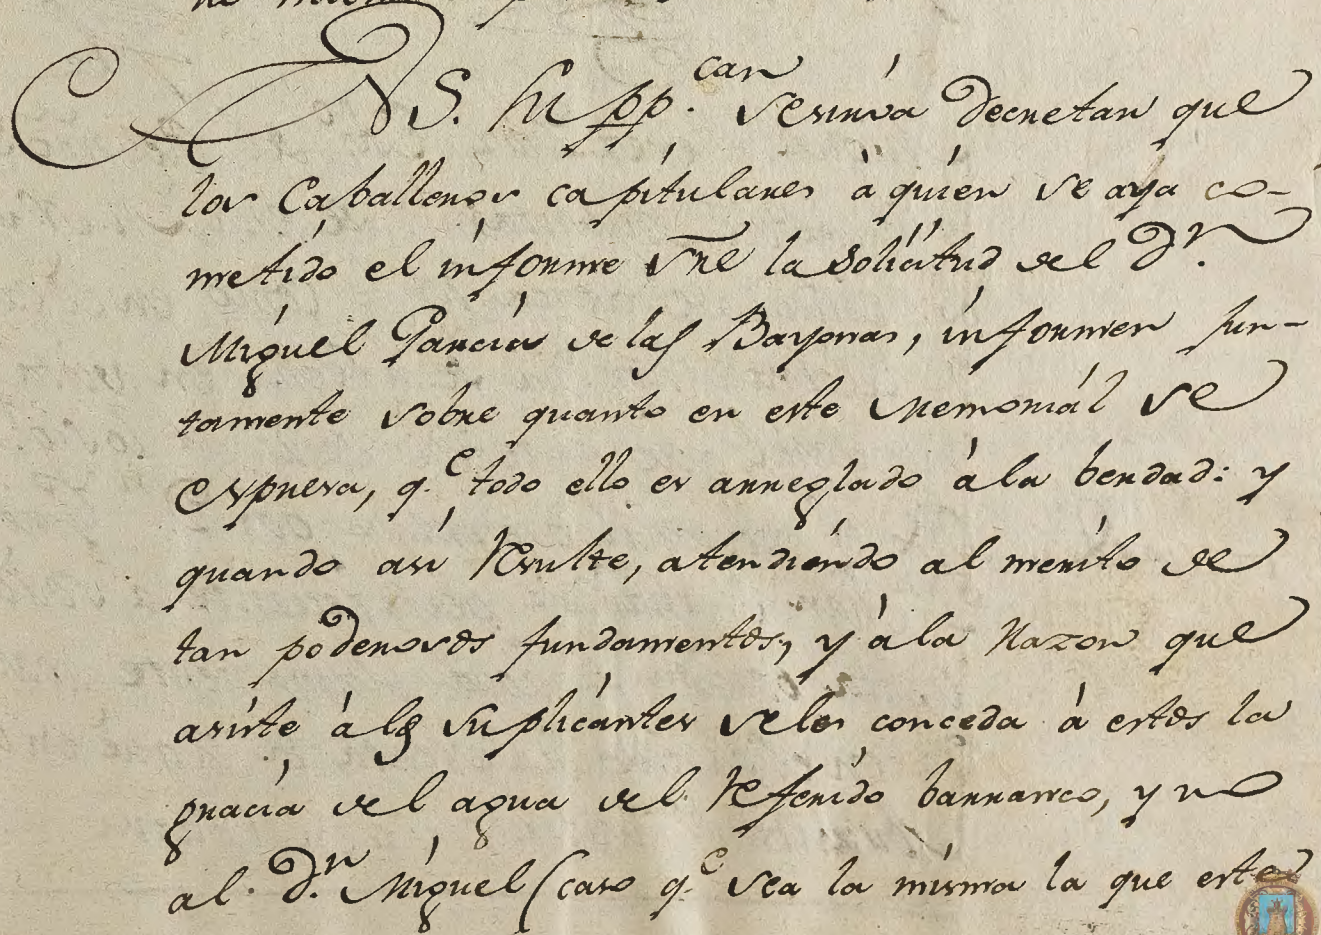 A V.S. supp.can se sirva decretar que
los Caballeros capitulares à quien se aya co-
metido el informe sre la solicitud del Dr.
Miguel Garcia de las Bayonas, informen jun-
tamente sobre quanto en este memorial se
expresa, q.e todo ello es arreglado à la berdad: y
quando asi resulte, atendiendo al merito de
tan poderosos fundamentos, y à la razon que
asiste à los suplicantes seles conceda à estos la
gracia del agua del referido barranco, y no
al D.n Miguel (caso q.e sea la misma la que este